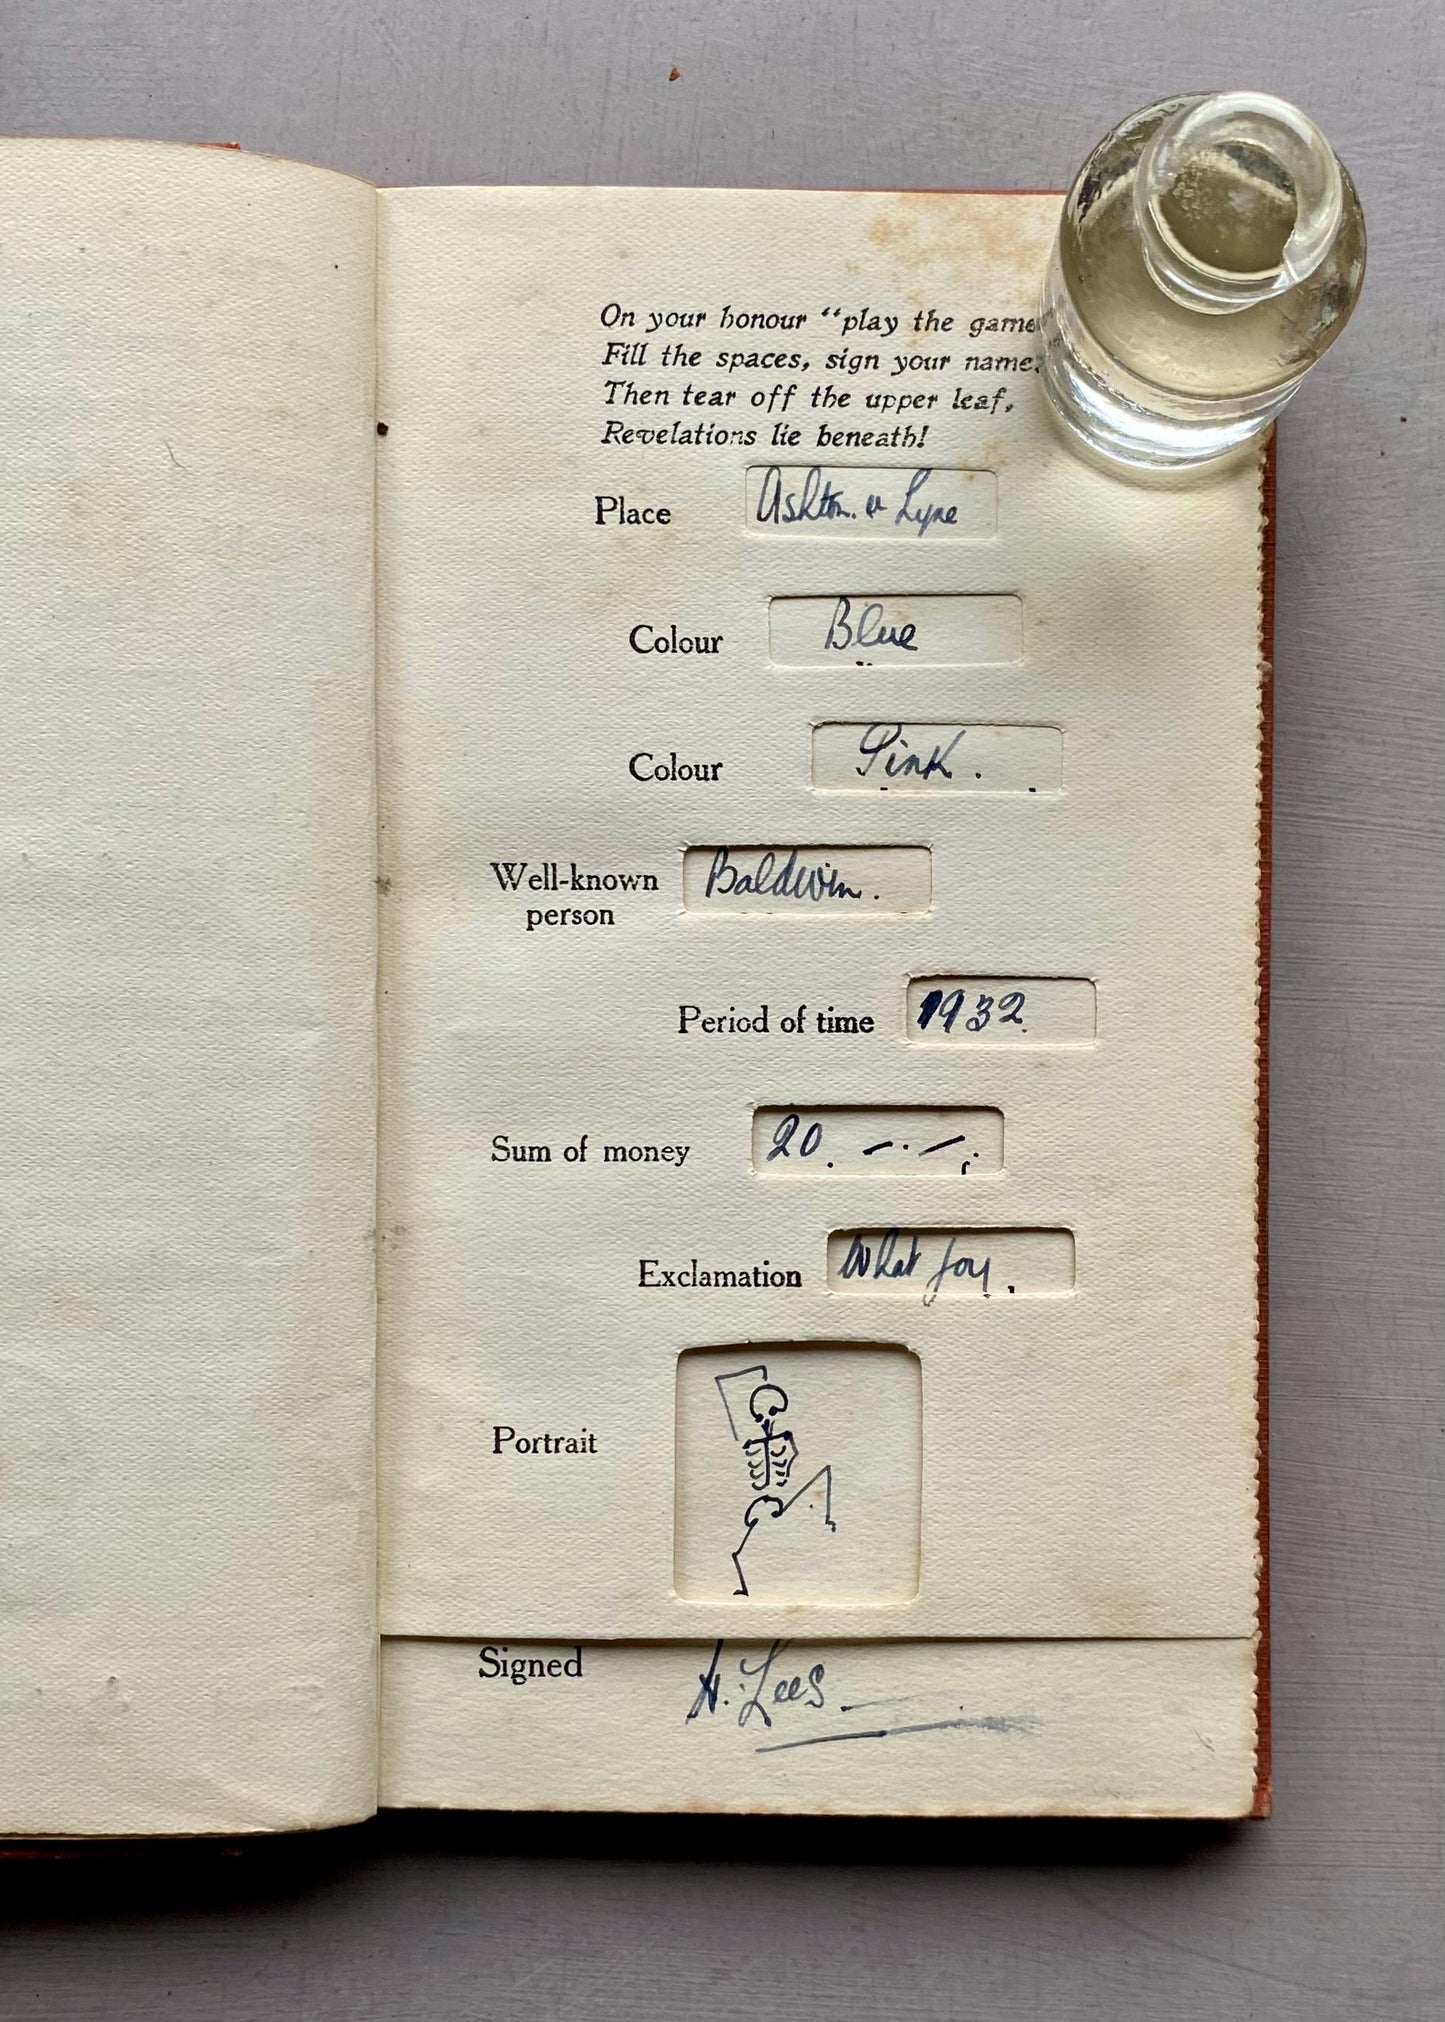 On your honour "play the game
Fill the spaces, sign your name;
Then tear off the upper leaf,
Revelations lie beneath!
Place Ashton. u Lyne
Colour Blue
Colour Pink.
Well-known
person Baldwin.
Period of time 1932.
Sum of money 20. —. —.
Exclamation What joy.
Portrait
Signed H. Lees